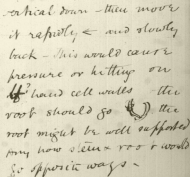 vertical down - then move
it rapidly & and slowly
back - This would cause
pressure or hitting on
hard cell walls the
root should go the
root might be well supported
how stem & root would
go opposite ways -